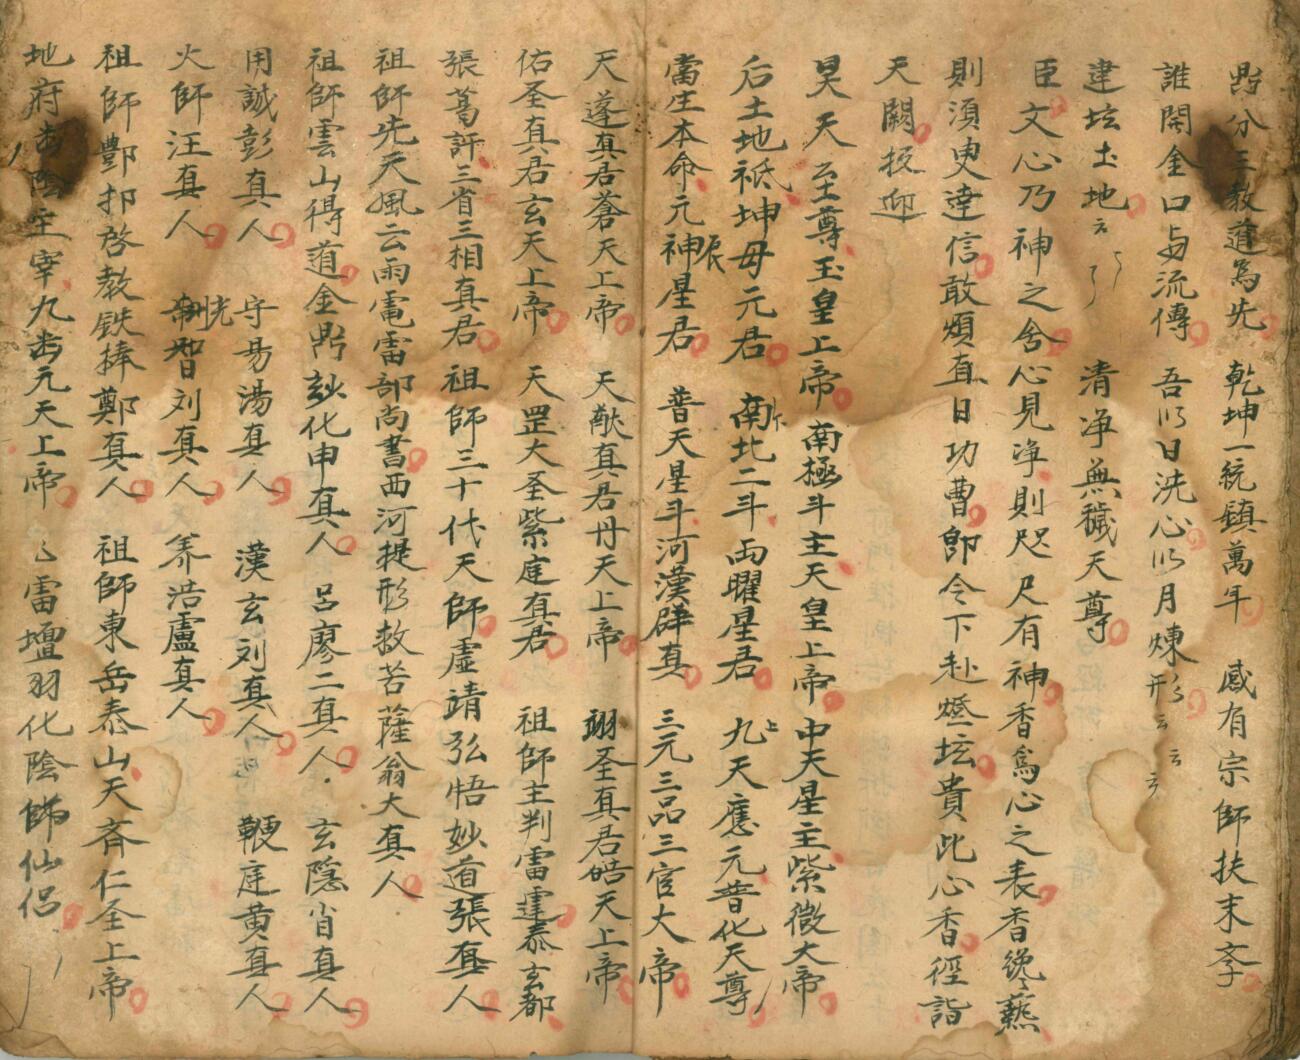 分三教道為先　乾坤一統鎮萬年　感有宗師扶末斈
誰開金口与流傳　吾以日洗心以月煉形云云云
建坛土地云　清净無穢天尊
臣文心乃神之舍心見净則咫尺有神香為心之表香纔爇
則須臾達信敢煩直日功曹即令下赴灯坛賫此心香徑詣
天闕扳迎
昊天至尊玉皇上帝南極斗主天皇上帝中天星主紫微大帝
后土地祇坤母元君　南北二斗両曜星君　九天應元普化天尊
當庄本命元神星君　普天星斗河漢群真　三元三品三官大帝
天蓬真君蒼天上帝　天猷真君丹天上帝　翊圣真君皓天上帝
佑圣真君玄天上帝　天罡大圣紫庭真君　祖師主判雷霆泰玄都
張葛許三省三相真君　祖師三十代天師虛靖弘悟妙道張真人
祖師先天風云雨電雷部尚書西河提形救苦薩翁大真人
祖師雲山得道金門妙化申真人　呂廖二真人　玄隱肖真人
用誠彭真人　守昜湯真人　漢玄刘真人　鞭庭黄真人
火師汪真人　智刘真人　养浩盧真人
祖師酆都啓教鉄捧鄭真人　祖師東岳泰山天斉仁圣上帝
地府岳陰主宰九岳元天上帝　雷壇羽化陰師仙侶